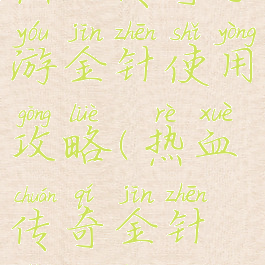 yóu jīn zhēn shǐ yòng
游金针使用
gōng lüè rè xuè
攻略(热血
chuán qí jīn zhēn
传奇金针